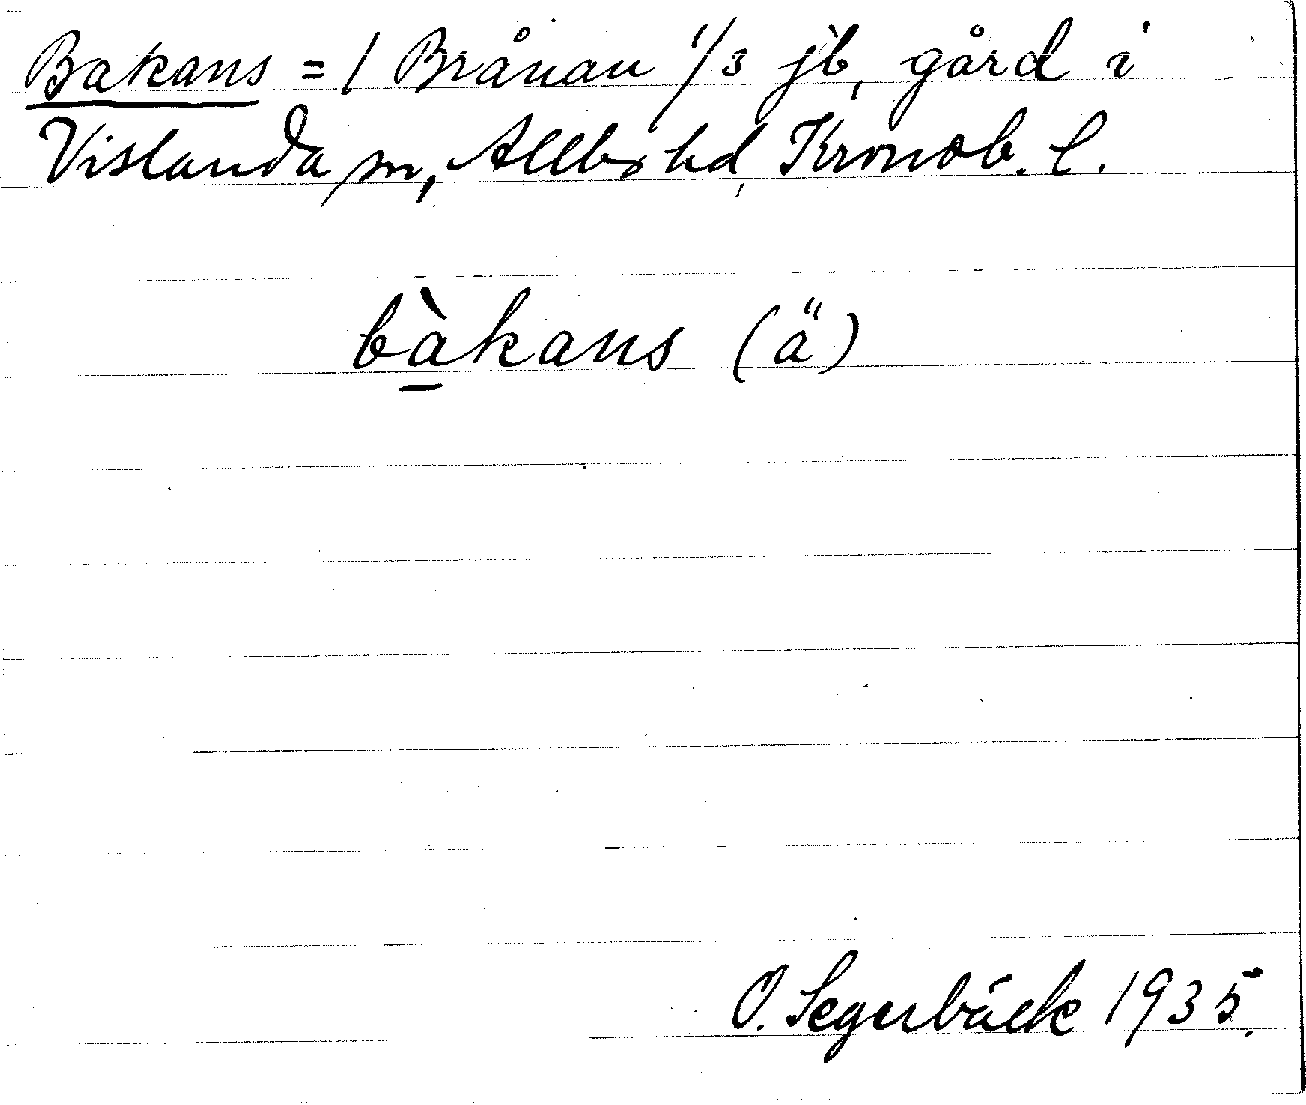 Bakans = / Brånan 1/3 jb, gård i
Vislanda sn, Allbo hd, Kronob. l.
bàkans (ä)
O. Segerbäck 1935.